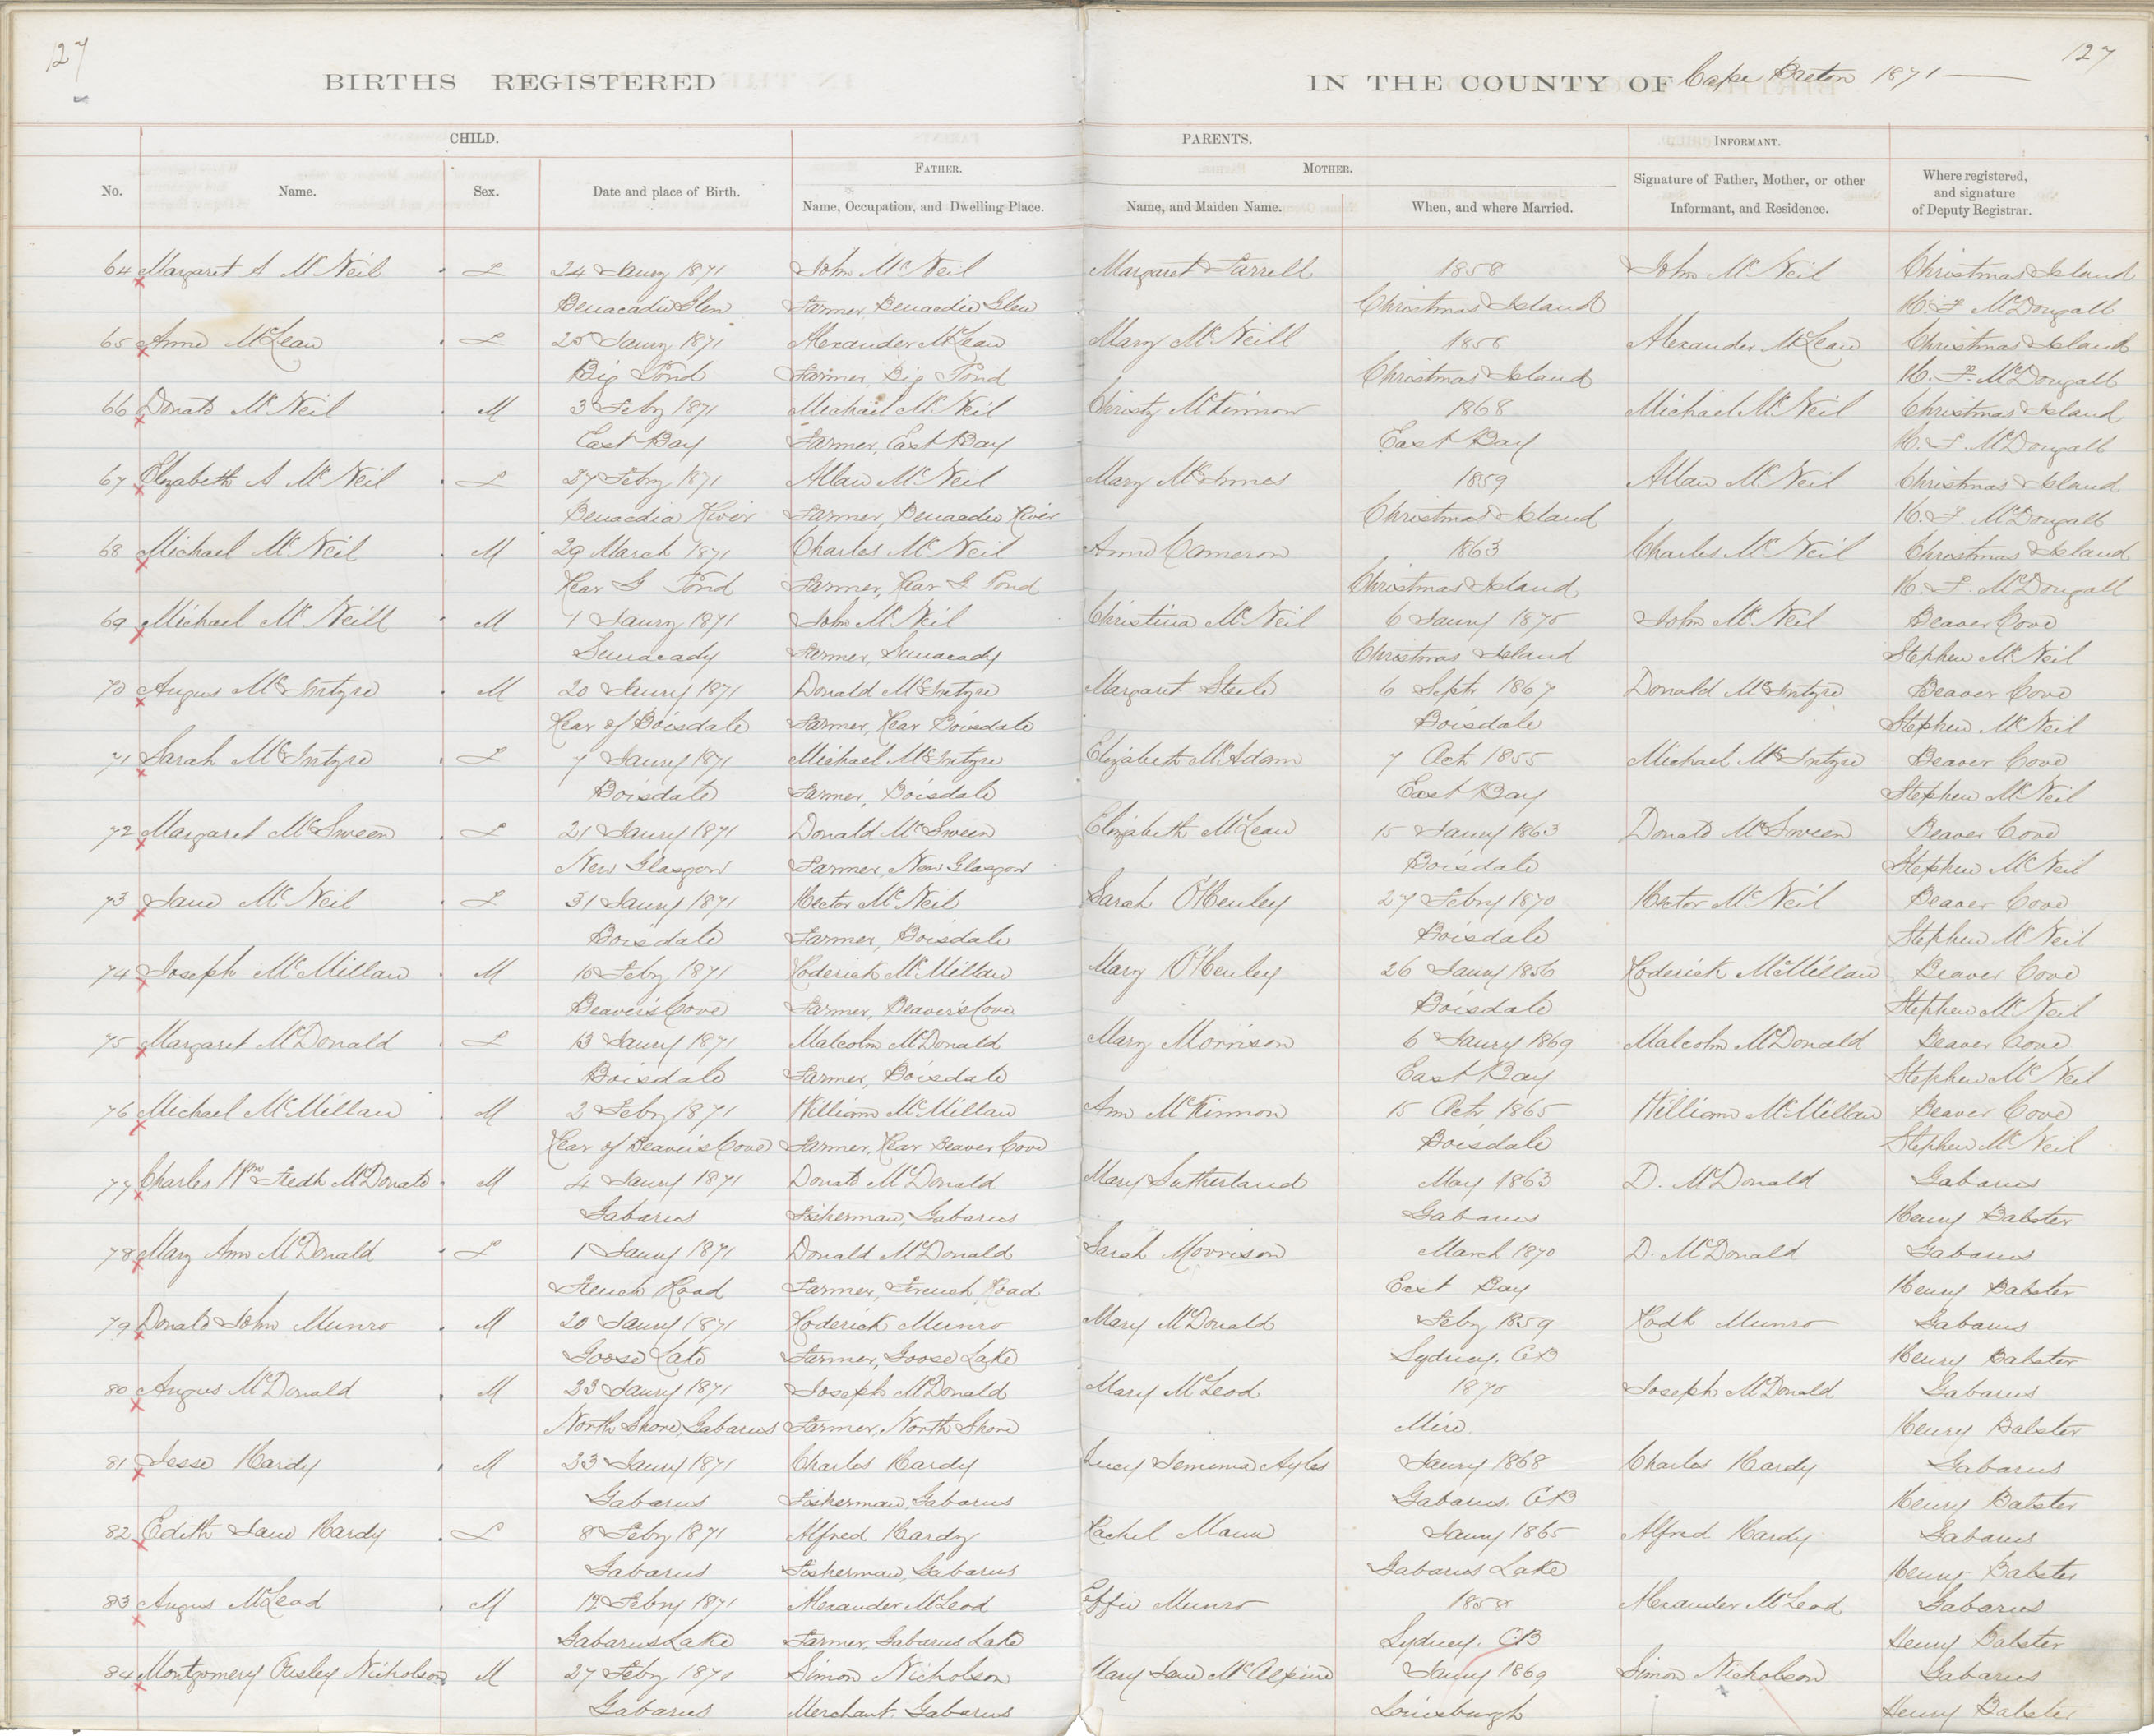 127
127
BIRTHS REGISTERED IN THE COUNTY OF Cape Breton 1871
CHILD. PARENTS. INFORMANT.
FATHER. MOTHER.
No. Name. Sex. Date and place of Birth. Name, Occupation, and Dwelling Place. Name, and Maiden Name. When, and where Married. Signature of Father, Mother, or other Informant, and Residence. Where registered, and signature of Deputy Registrar.
64 Margaret A McNeil F 24 Jauny 1871 John McNeil Margaret Farrell 1858 John McNeil Christmas Island
Benacadie Glen Farmer, Benacadie Glen Christmas Island H. F. McDougall
65 Anne McLean F 25 Jauny 1871 Alexander McLean Mary McNeill 1856 Alexander McLean Christmas Island
Big Pond Farmer, Big Pond Christmas Island H. F. McDougall
66 Donald McNeil M 3 Feby 1871 Michael McNeil Christy McKinnon 1868 Michael McNeil Christmas Island
East Bay Farmer, East Bay East Bay H. F. McDougall
67 Elizabeth A McNeil F 27 Feby 1871 Allan McNeil Mary McInnes 1859 Allan McNeil Christmas Island
Benacdia River Farmer, Benaadie River Christmas Island H. F. McDougall
68 Michael McNeil M 29 March 1871 Charles McNeil Anne Cameron 1863 Charles McNeil Christmas Island
Rear G Pond Farmer, Rear G Pond Christmas Island H. F. McDougall
69 Michael McNeill M 1 Jauny 1871 John McNeil Christina McNeil 6 Jauny 1870 John McNeil Beaver Cove
Farmer, Christmas Island Stephen McNeil
70 Angus McIntyre M 20 Jauny 1871 Donald McIntyre Margaret Steele 6 Septr 1867 Donald McIntyre Beaver Cove
Rear of Boisdale Farmer, Rear Boisdale Boisdale Stephen McNeil
71 Sarah McIntyre F 7 Jauny 1871 Michael McIntyre Elizabeth McAdam 7 Oct 1855 Michael McIntyre Beaver Cove
Boisdale Farmer, Boisdale East Bay Stephen McNeil
72 Margaret McSween F 21 Jauny 1871 Donald McSween Elizabeth McLean 15 Jauny 1863 Donald McSween Beaver Cove
New Glasgow Farmer, New Glasgow Boisdale Stephen McNeil
73 Jane McNeil F 31 Jauny 1871 Hector McNeil Sarah O'Henley 27 Feby 1870 Hector McNeil Beaver Cove
Boisdale Farmer, Boisdale Boisdale Stephen McNeil
74 Joseph McMillan M 10 Feby 1871 Roderick McMillan Mary O'Henley 26 Jauny 1856 Roderick McMillan Beaver Cove
Beaver's Cove Farmer, Beaver's Cove Boisdale Stephen McNeil
75 Margaret McDonald F 13 Jauny 1871 Malcolm McDonald Mary Morrison 6 Jauny 1869 Malcolm McDonald Beaver Cove
Boisdale Farmer, Boisdale East Bay Stephen McNeil
76 Michael McMillan M 2 Feby 1871 William McMillan Ann McKinnon 15 Octr 1865 William McMillan Beaver Cove
Rear of Beaver's Cove Farmer, Rear Beaver Cove Boisdale Stephen McNeil
77 Charles Wm Fredk McDonald M 4 Jauny 1871 Donald McDonald Mary Sutherland May 1863 D. McDonald Gabarus
Gabarus Fisherman, Gabarus Gabarus Henry Babster
78 Mary Ann McDonald F 1 Jauny 1871 Donald McDonald Sarah Morrison March 1870 D. McDonald Gabarus
French Road Farmer, French Road East Bay Henry Babster
79 Donald John Munro M 20 Jauny 1871 Roderick Munro Mary McDonald Feby 1859 Rodk Munro Gabarus
Goose Lake Farmer, Goose Lake Sydney. CB Henry Babster
80 Angus McDonald M 23 Jauny 1871 Joseph McDonald Mary McLeod 1870 Joseph McDonald Gabarus
North Shore, Gabarus Farmer, North Shore Mire Henry Babster
81 Jesse Hardy M 23 Jauny 1871 Charles Hardy Lucy Jemima Ayles Jauny 1868 Charles Hardy Gabarus
Gabarus Fisherman, Gabarus Gabarus. CB Henry Babster
82 Edith Jane Hardy F 8 Feby 1871 Alfred Hardy Rachel Mann Jauny 1865 Alfred Hardy Gabarus
Gabarus Fisherman, Gabarus Gabarus Lake Henry Babster
83 Angus McLeod M 12 Feby 1871 Alexander McLeod Effie Munro 1858 Alexander McLeod Gabarus
Gabarus Lake Farmer, Gabarus Lake Sydney. CB Henry Babster
84 Montgomery Ousley Nicholson M 27 Feby 1871 Simon Nicholson Mary Jane McAlpine Jauny 1869 Simon Nicholson Gabarus
Gabarus Merchant. Gabarus Louisburgh Henry Babster